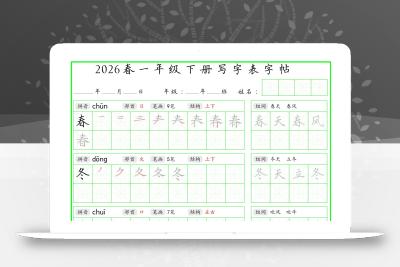 2026春一年级下册写字表字帖
年 月 日 年级: 年 班 姓名:
拼音 chūn 部首 日 笔画 9笔 结构 上下 组词 春天 春风
春 春 春 春天春风
春
拼音 dōng 部首 夂 笔画 5笔 结构 上下 组词 冬天 立冬
冬 冬 冬 冬天立冬
拼音 chuī 部首 口 笔画 7笔 结构 左右 组词 吹风 吹牛